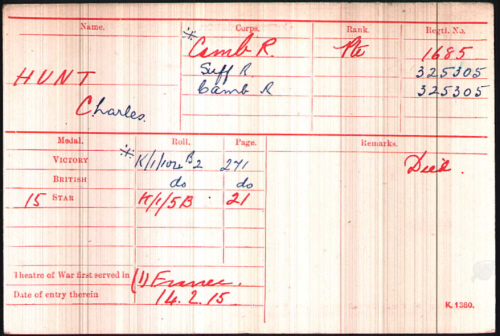 Name. Corps. Rank. Regtl. No.
* Camb R. Pte 1685
HUNT Suff R. 325305
Charles. Camb R 325305
Medal. Roll. Page. Remarks.
VICTORY * K/1/104 B2 271 Died.
BRITISH do do
15 STAR K/1/5B 21
Theatre of War first served in (1) France.
Date of entry therein 14.2.15
K. 1380.